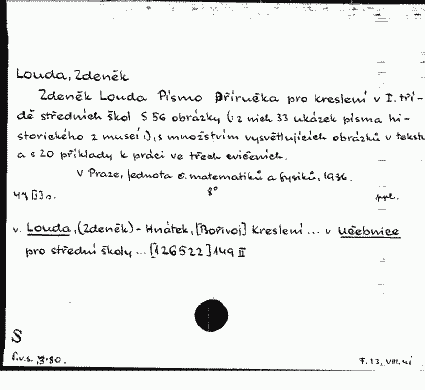 Louda, Zdeněk
Zdeněk Louda Písmo Příručka pro kreslení v I. tří-
dě středních škol S 56 obrázky (: z nich 33 ukázek písma hi-
storického z museí :), s množstvím vysvětlujících obrázků v textu
a s 20 příklady k práci ve třech cvičeních.
V Praze, Jednota č. matematiků a fysiků, 1936.
8°
44 [3] s. ppl.
v. Louda, (Zdeněk) - Hnátek, [Bořivoj] Kreslení ... v Učebnice
pro střední školy ... [126522] 149 II
S
f.v.s. 3.80. F. 13, VIII. 41